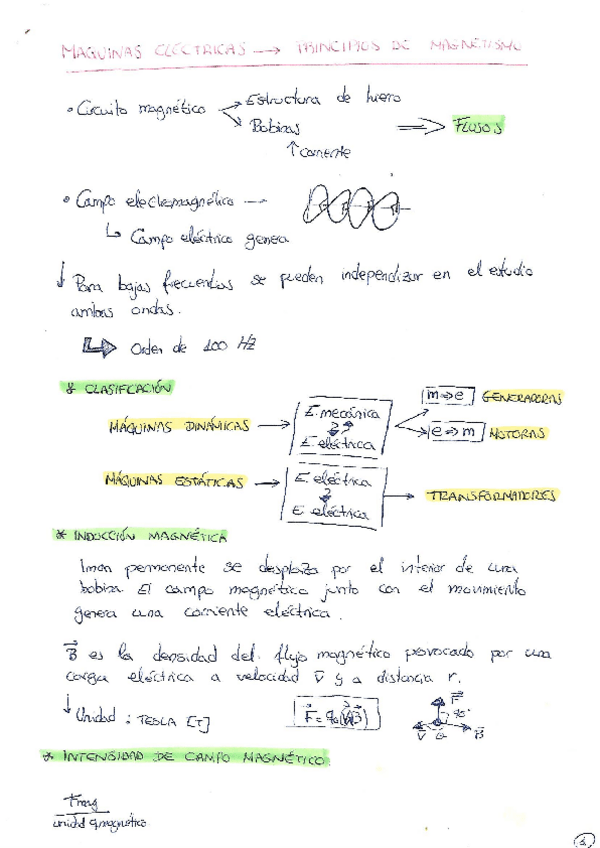 MAQUINAS ELÉCTRICAS → PRINCIPIOS DE MAGNETISMO
• Circuito magnético → Estructura de hierro
→ Bobinas
⇒ FLUJOS
↑ corriente
• Campo electromagnético
↳ Campo eléctrico genera
↓ Para bajas frecuencias se pueden independizar en el estudio
ambas ondas.
Orden de 100 Hz
* CLASIFICACIÓN
MÁQUINAS DINÁMICAS → E. mecánica
E. eléctrica
m⇒e GENERADORAS
e⇒m MOTORAS
MÁQUINAS ESTÁTICAS → E. eléctrica
E. eléctrica
→ TRANSFORMADORES
* INDUCCIÓN MAGNÉTICA
Iman permanente se desplaza por el interior de una
bobina. El campo magnético junto con el movimiento
genera una corriente eléctrica.
B es la densidad del flujo magnético provocado por una
carga eléctrica a velocidad v y a distancia r.
↓ Unidad: TESLA [T]
F
90°
V Q B
* INTENSIDAD DE CAMPO MAGNÉTICO.
Fmag
unidad q magnética
1